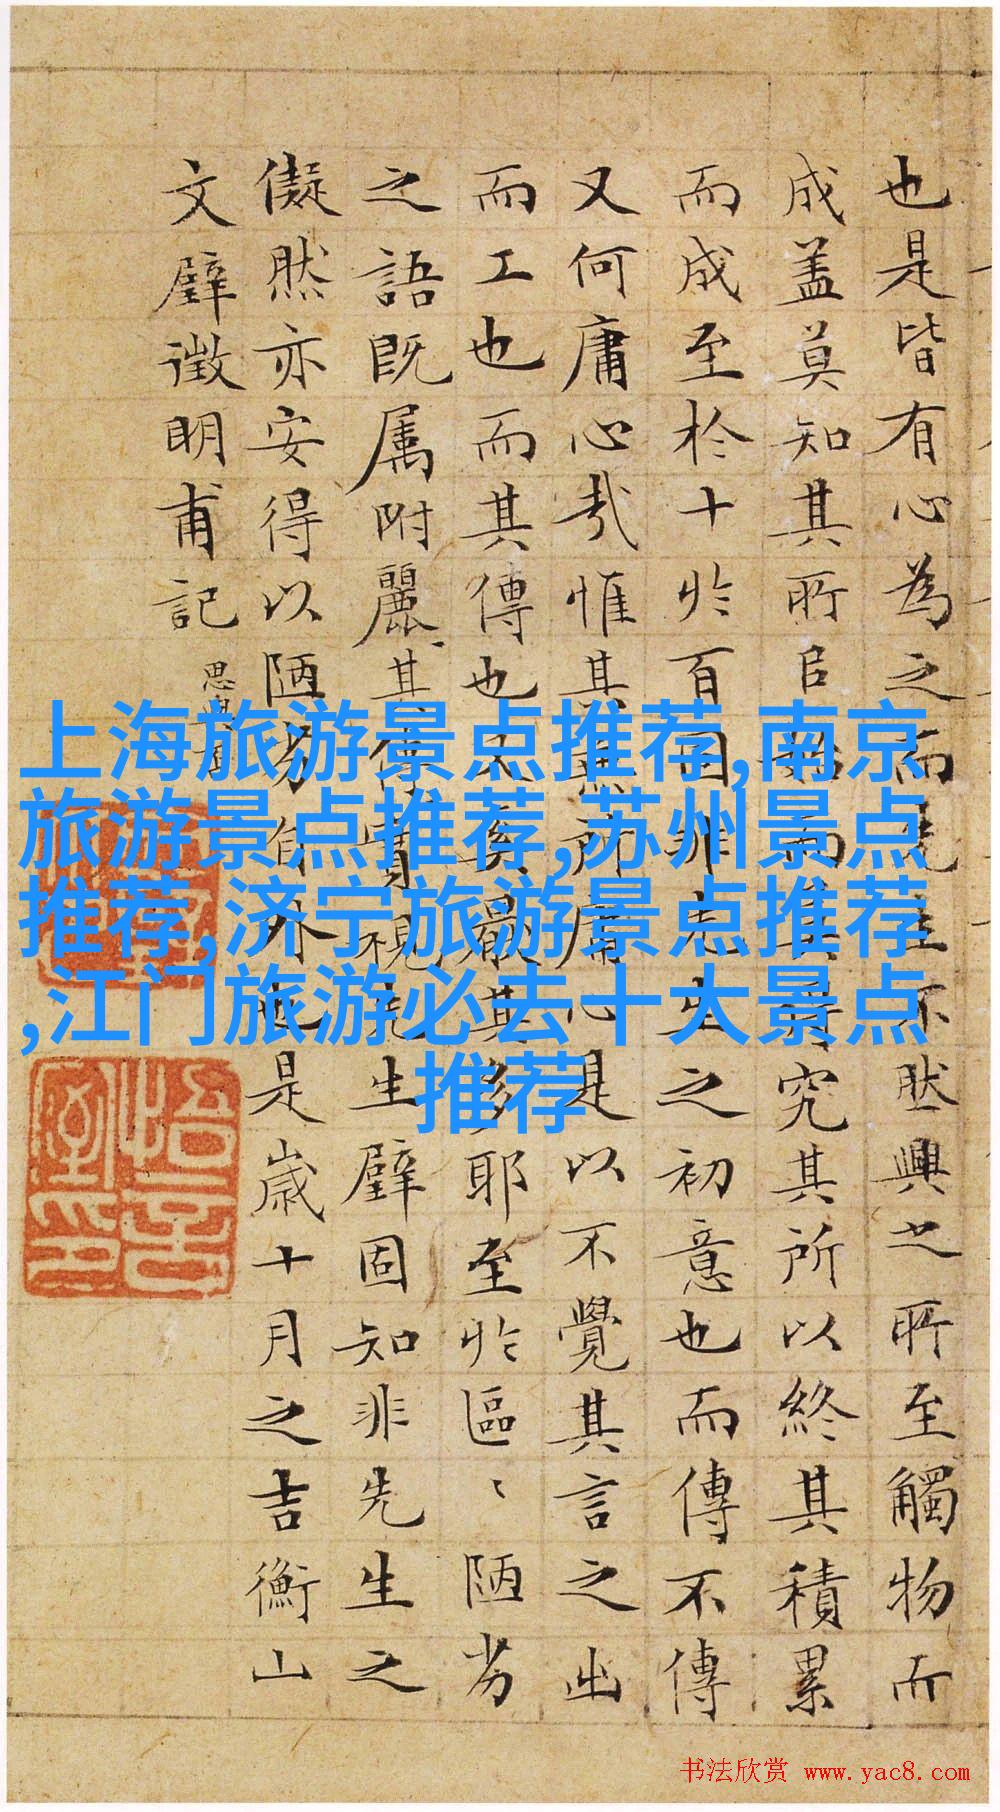 也是皆有心為之而
不然興之所至觸物而
成盖莫知其所自始而
究其所以終其積累
而成至於十於百固非先生之初意也而傳不傳
又何庸心哉惟其無所庸心是以不覺其言之出
而工也而其傳也又奚嚴其多耶至於區〻陋劣
之語既属附麗其傳實視先生璧固知非先生之
儗然亦安得以陋劣自外也是歲十月之吉衡山
文璧徵明甫記
上海旅游景点推荐,南京
旅游景点推荐,苏州景点
推荐,济宁旅游景点推荐
,江门旅游必去十大景点
推荐
书法欣赏 www.yac8.com